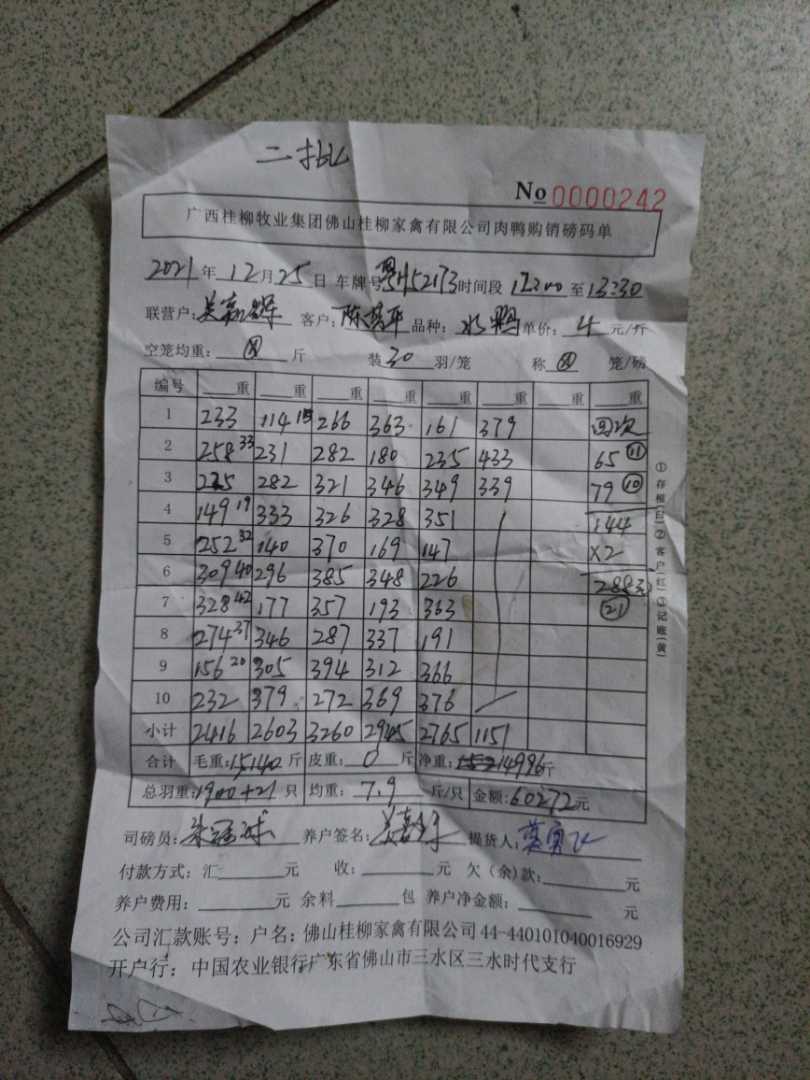 二批
No 0000242
广西桂柳牧业集团佛山桂柳家禽有限公司肉鸭购销磅码单
2021年12月25日 车牌号 时间段 12:00 至 13:30
联营户: 客户: 品种:水鸭 单价:4 元/斤
空笼均重: 斤 装30羽/笼 称 笼/磅
编号 重 重 重 重 重 重 重 重
1 233 114 15 266 363 161 379 回次
2 258 33 231 282 180 235 433 65 ⑪
3 235 282 321 346 349 339 79 ⑩
4 149 19 333 326 328 351 144
5 252 32 140 370 169 147 X2
6 309 40 296 385 348 226 288元
7 328 42 177 357 193 363 ㉑
8 274 37 346 287 337 191
9 156 20 305 394 312 366
10 232 379 272 369 376
小计 2416 2603 3260 2945 2765 1151
合计 毛重:15140斤 皮重:0斤 净重:14996斤
总羽重:1900+21只 均重:7.9斤/只 金额:60272元
司磅员: 养户签名: 提货人:
付款方式:汇 元 收: 元 欠(余)款: 元
养户费用: 元 余料 包 养户净金额: 元
公司汇款账号:户名:佛山桂柳家禽有限公司 44-440101040016929
开户行:中国农业银行广东省佛山市三水区三水时代支行
①存根(白)②客户(红)③记账(黄)